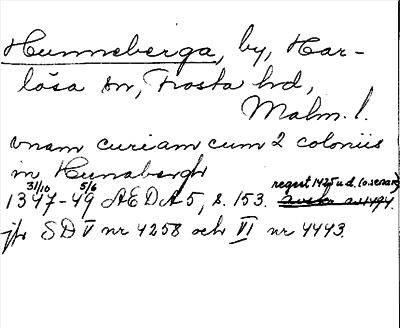 Hunneberga, by, Har-
lösa sn, Frosta hd,
Malm. l.
vnam curiam cum 2 coloniis
in Hunabergh
31/10 5/6 regest 1425 u.d. (o. senare)
1347-49 AEDA 5, s. 153.
jfr SD V nr 4258 och VI nr 4443.